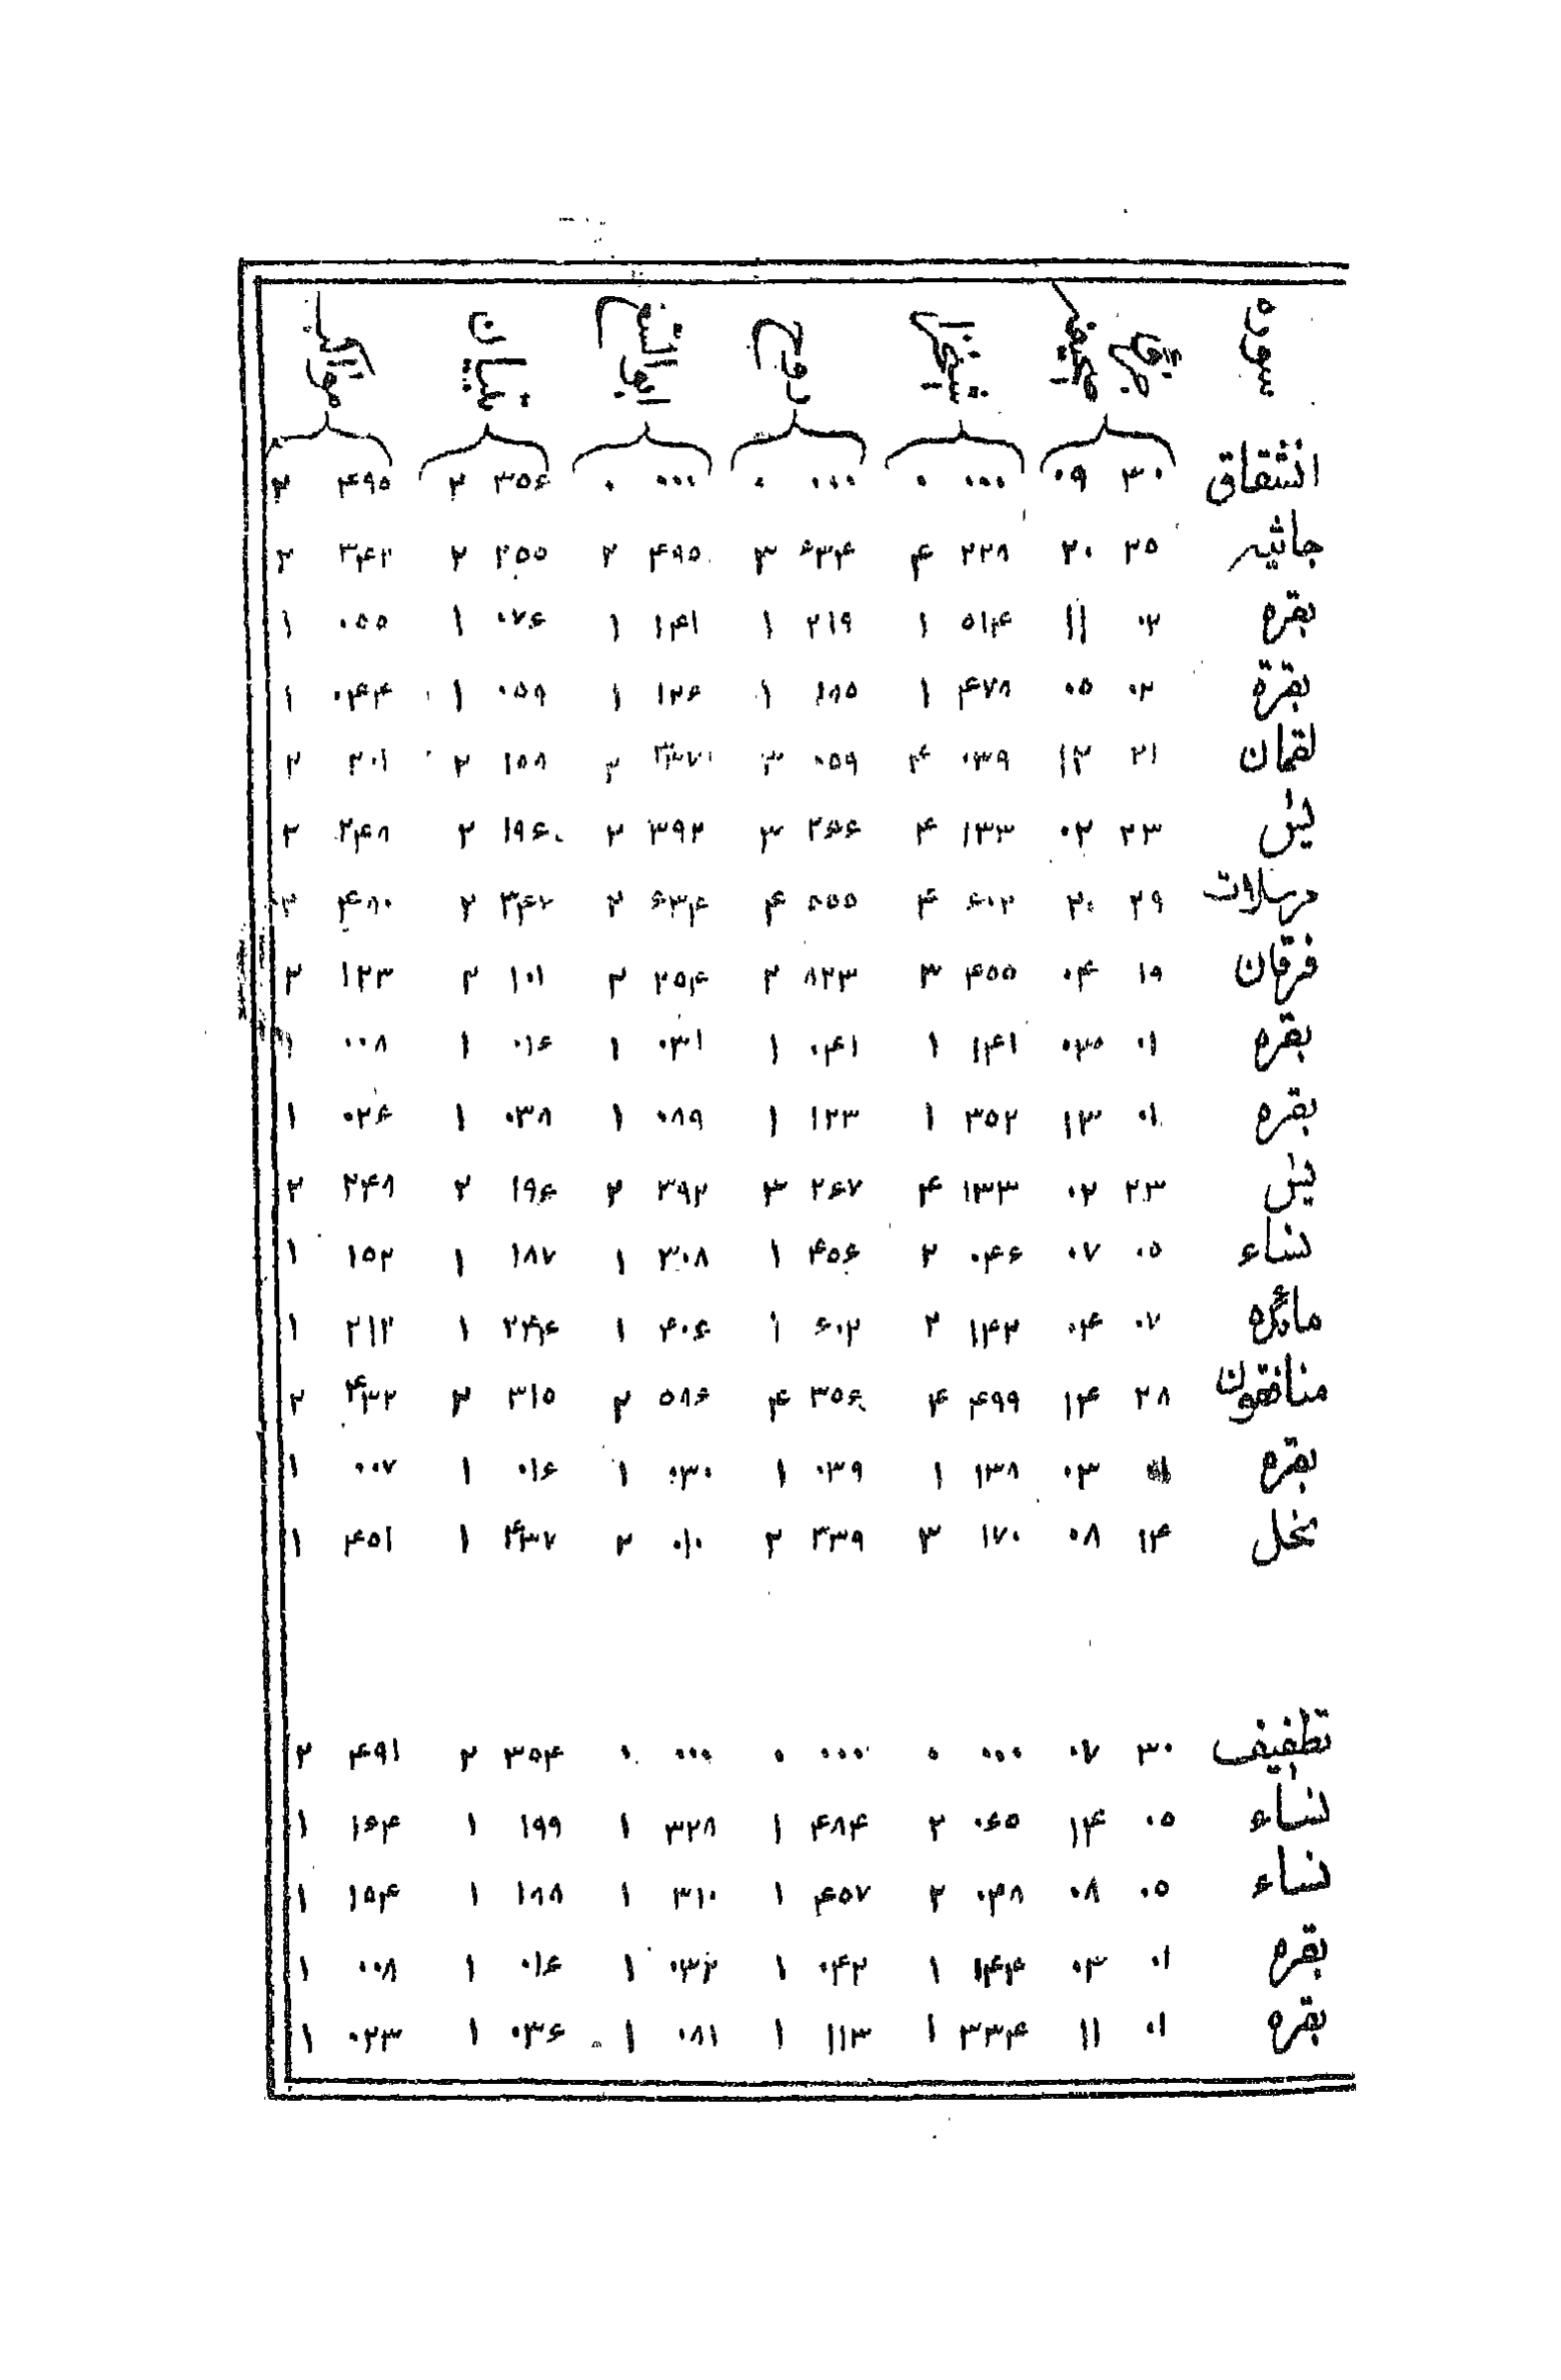 سوره
انشقاق ۳۰ ۰۹ ۰۰۰ ۰ ۰۰۰ ۰ ۰۰۰ ۰ ۳۵۶ ۲ ۴۹۵ ۲
جاثیه ۲۵ ۲۰ ۲۲۸ ۴ ۶۳۴ ۳ ۴۹۵ ۲ ۲۵۵ ۲ ۳۴۲ ۲
بقره ۰۲ ۱۱ ۵۱۴ ۱ ۲۱۹ ۱ ۱۴۱ ۱ ۰۷۶ ۱ ۰۵۵ ۱
بقرة ۰۲ ۰۵ ۴۷۸ ۱ ۱۸۵ ۱ ۱۲۶ ۱ ۰۵۹ ۱ ۰۴۴ ۱
لقمان ۲۱ ۱۲ ۰۳۹ ۴ ۰۵۹ ۳ ۲ ۱۵۸ ۲ ۲۰۱ ۲
یٰس ۲۳ ۰۲ ۱۳۳ ۴ ۲۶۶ ۳ ۳۹۲ ۲ ۱۹۶ ۲ ۲۴۸ ۲
مرسلات ۲۹ ۲۰ ۶۰۲ ۴ ۵۵۵ ۴ ۶۳۴ ۲ ۳۴۲ ۲ ۴۸۰ ۲
فرقان ۱۹ ۰۴ ۴۵۵ ۳ ۸۲۳ ۲ ۲۵۴ ۲ ۱۰۱ ۲ ۱۲۳ ۲
بقره ۰۱ ۰۳ ۱۴۱ ۱ ۰۴۱ ۱ ۰۳۱ ۱ ۰۱۶ ۱ ۰۰۸ ۱
بقره ۰۱ ۱۳ ۳۵۲ ۱ ۱۲۳ ۱ ۰۸۹ ۱ ۰۳۸ ۱ ۰۲۶ ۱
یٰس ۲۳ ۰۲ ۱۳۳ ۴ ۲۶۷ ۳ ۳۹۲ ۲ ۱۹۶ ۲ ۲۴۸ ۲
نساء ۰۵ ۰۷ ۰۴۶ ۲ ۴۵۶ ۱ ۳۰۸ ۱ ۱۸۷ ۱ ۱۵۲ ۱
مائده ۰۷ ۰۴ ۱۴۲ ۲ ۶۰۲ ۱ ۴۰۶ ۱ ۲۴۴ ۱ ۲۱۲ ۱
منافقون ۲۸ ۱۴ ۴۹۹ ۴ ۳۵۶ ۴ ۵۸۶ ۲ ۳۱۵ ۲ ۴۳۲ ۲
بقره ۰۳ ۱۳۸ ۱ ۰۳۹ ۱ ۰۳۰ ۱ ۰۱۶ ۱ ۰۰۷ ۱
نخل ۱۴ ۰۸ ۱۷۰ ۳ ۳۳۹ ۲ ۰۱۰ ۲ ۴۳۷ ۱ ۴۵۱ ۱
تطفیف ۳۰ ۰۷ ۰۰۰ ۰ ۰۰۰ ۰ ۰۰۰ ۰ ۳۵۴ ۲ ۴۹۱ ۲
نساء ۰۵ ۱۴ ۰۶۵ ۲ ۴۸۴ ۱ ۳۲۸ ۱ ۱۹۹ ۱ ۱۶۴ ۱
نساء ۰۵ ۰۸ ۰۴۸ ۲ ۴۵۷ ۱ ۳۱۰ ۱ ۱۸۸ ۱ ۱۵۴ ۱
بقره ۰۱ ۰۳ ۱۴۴ ۱ ۰۴۲ ۱ ۰۳۲ ۱ ۰۱۶ ۱ ۰۰۸ ۱
بقره ۰۱ ۱۱ ۳۳۴ ۱ ۱۱۳ ۱ ۰۸۱ ۱ ۰۳۶ ۱ ۰۲۳ ۱